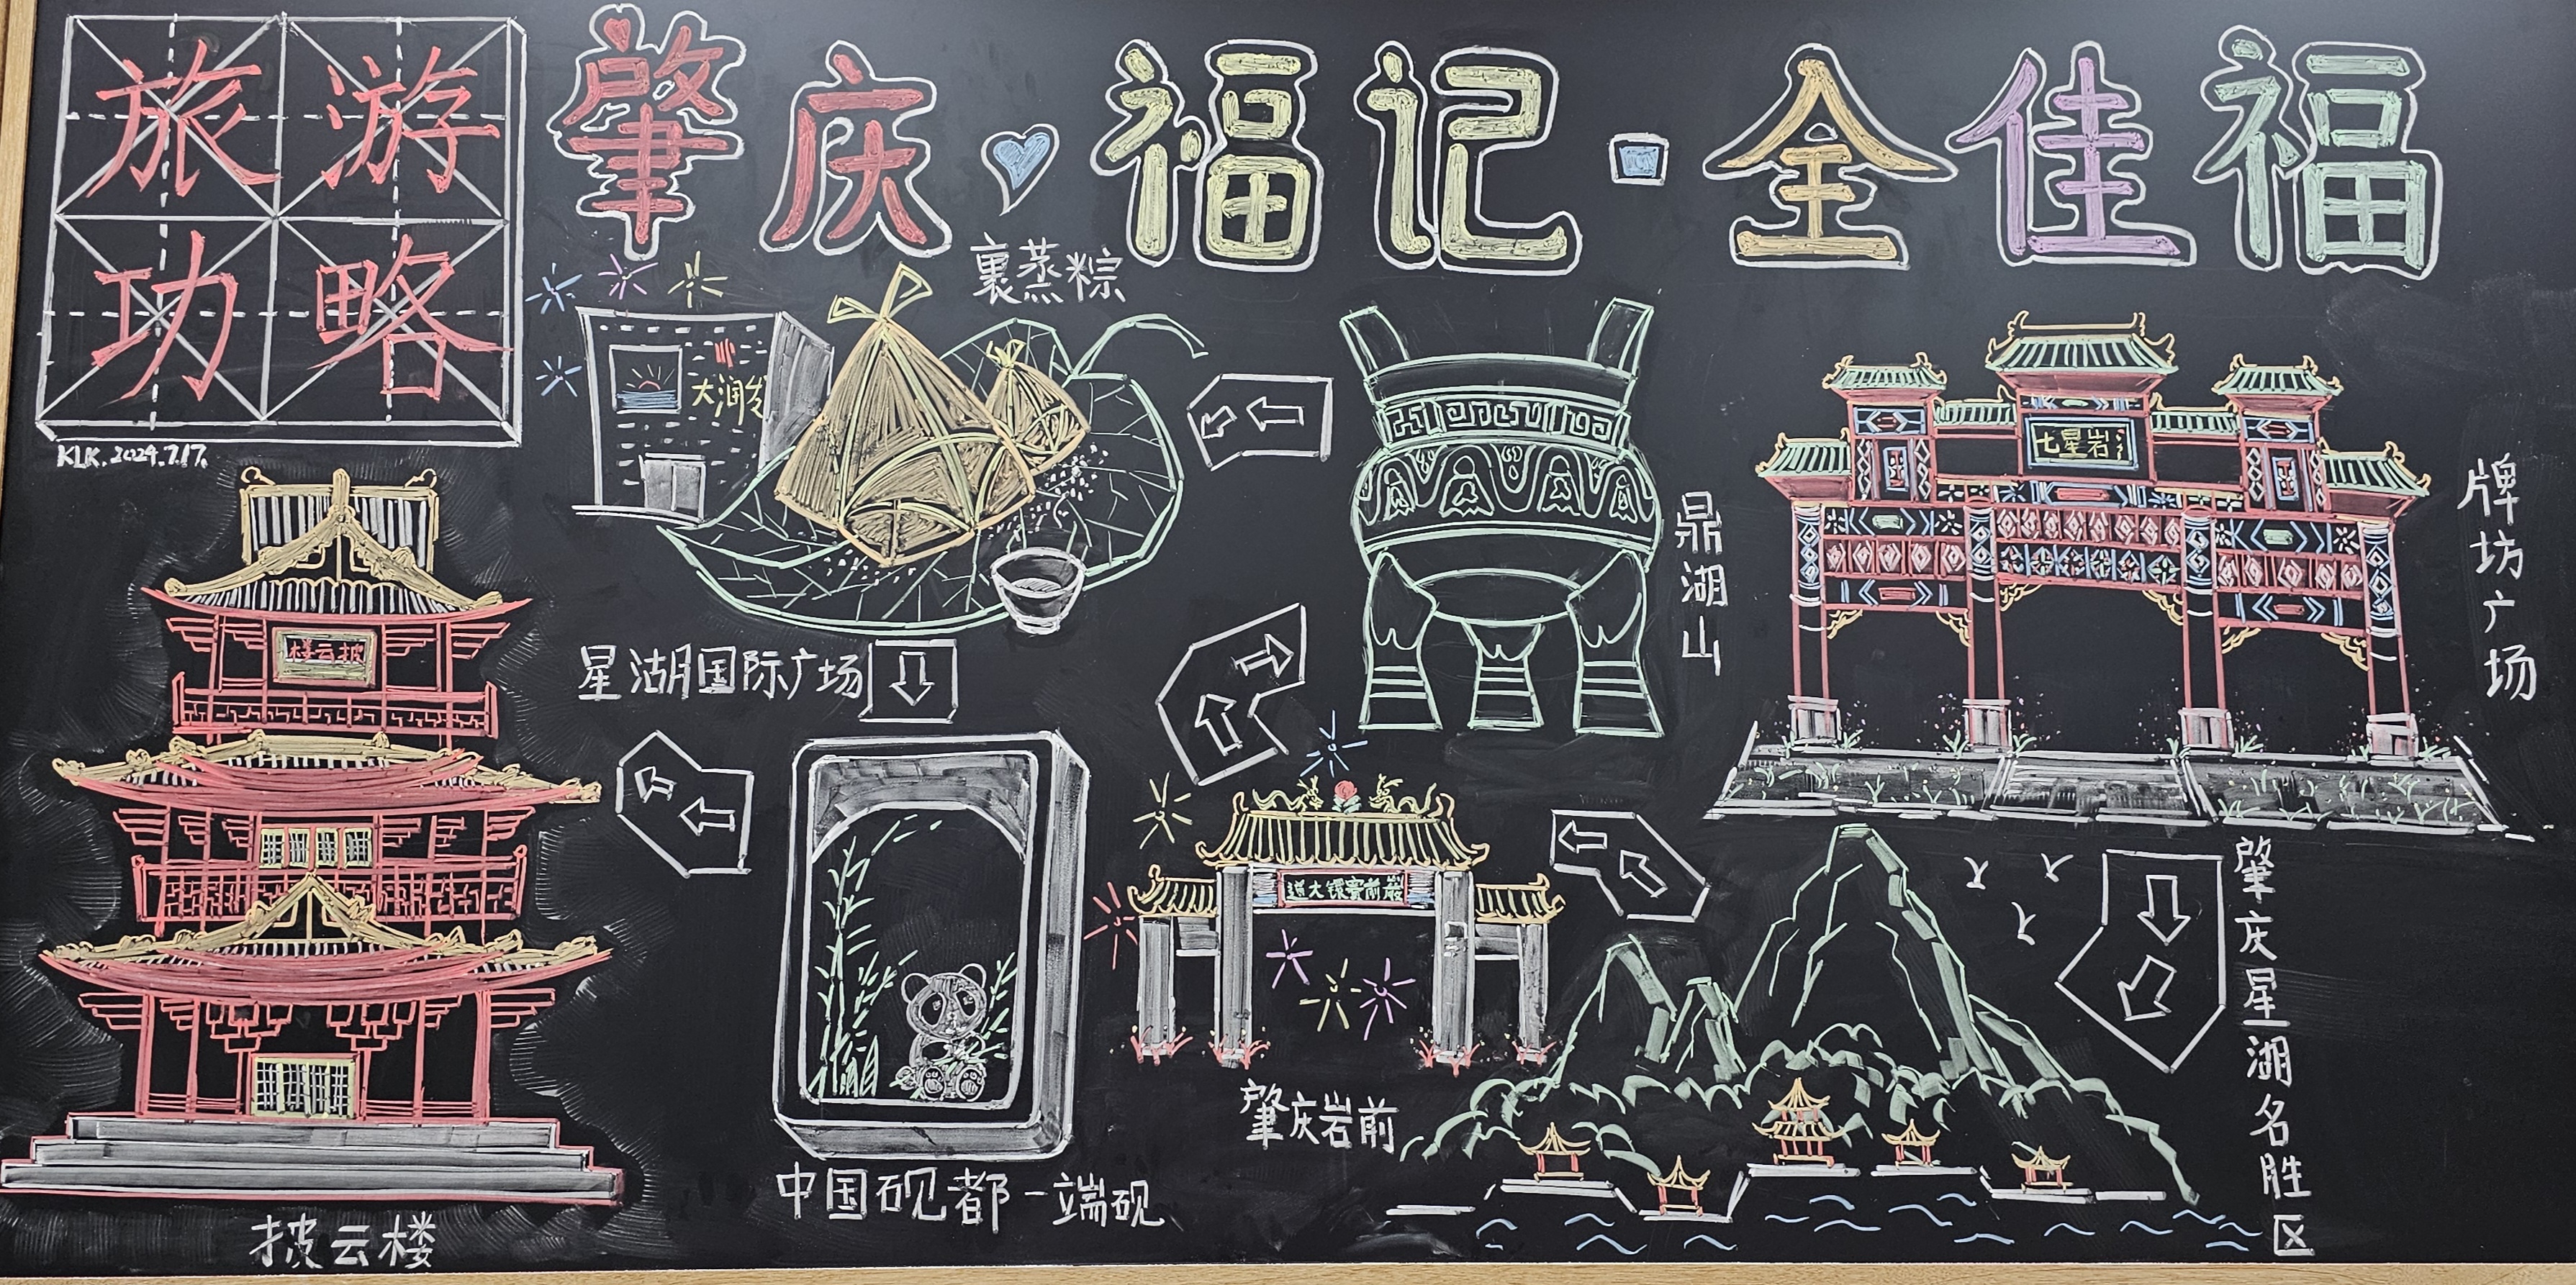 旅游
功略
肇庆 福记 全佳福
KLK.2024.7.17.
裹蒸粽
大润发
星湖国际广场
鼎湖山
七星岩
牌坊广场
披云楼
披云楼
中国砚都-端砚
岩前赛馔大道
肇庆岩前
肇庆星湖名胜区